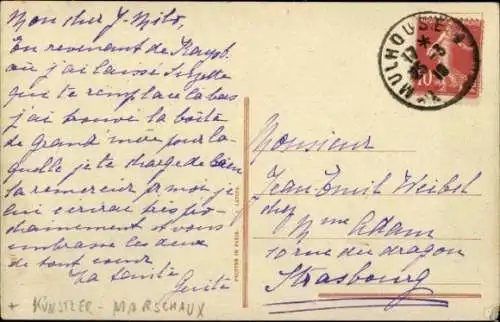 Mon cher J-Milo,
En revenant de Kaysb.
où j'ai laissé Suzette
qui te remplace là bas
j'ai trouvé la boîte
de grand' mère pour la-
quelle je te charge de bien
la remercier moi je
lui écrirai très pro-
chainement et vous
embrasse les deux
de tout coeur
Ta tante
MULHOUSE
PRINTED IN PARIS
Monsieur
Jean-Emil Weibel
chez
Mme Adam
10 rue du dragon
Strasbourg
+ KÜNSTLER - MARSCHAUX